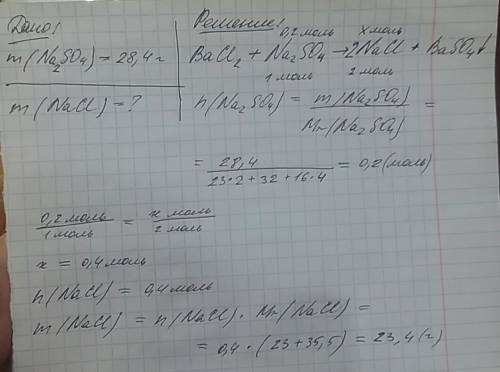 Дано:
m(Na₂SO₄) = 28,4 г
m(NaCl) = ?
Решение:
0,2 моль х моль
BaCl₂ + Na₂SO₄ → 2NaCl + BaSO₄↓
1 моль 2 моль
n(Na₂SO₄) = m(Na₂SO₄) / Mr(Na₂SO₄) =
= 28,4 / 23·2+32+16·4 = 0,2 (моль)
0,2 моль / 1 моль = х моль / 2 моль
х = 0,4 моль
n(NaCl) = 0,4 моль
m(NaCl) = n(NaCl) · Mr(NaCl) =
= 0,4 · (23+35,5) = 23,4 (г)